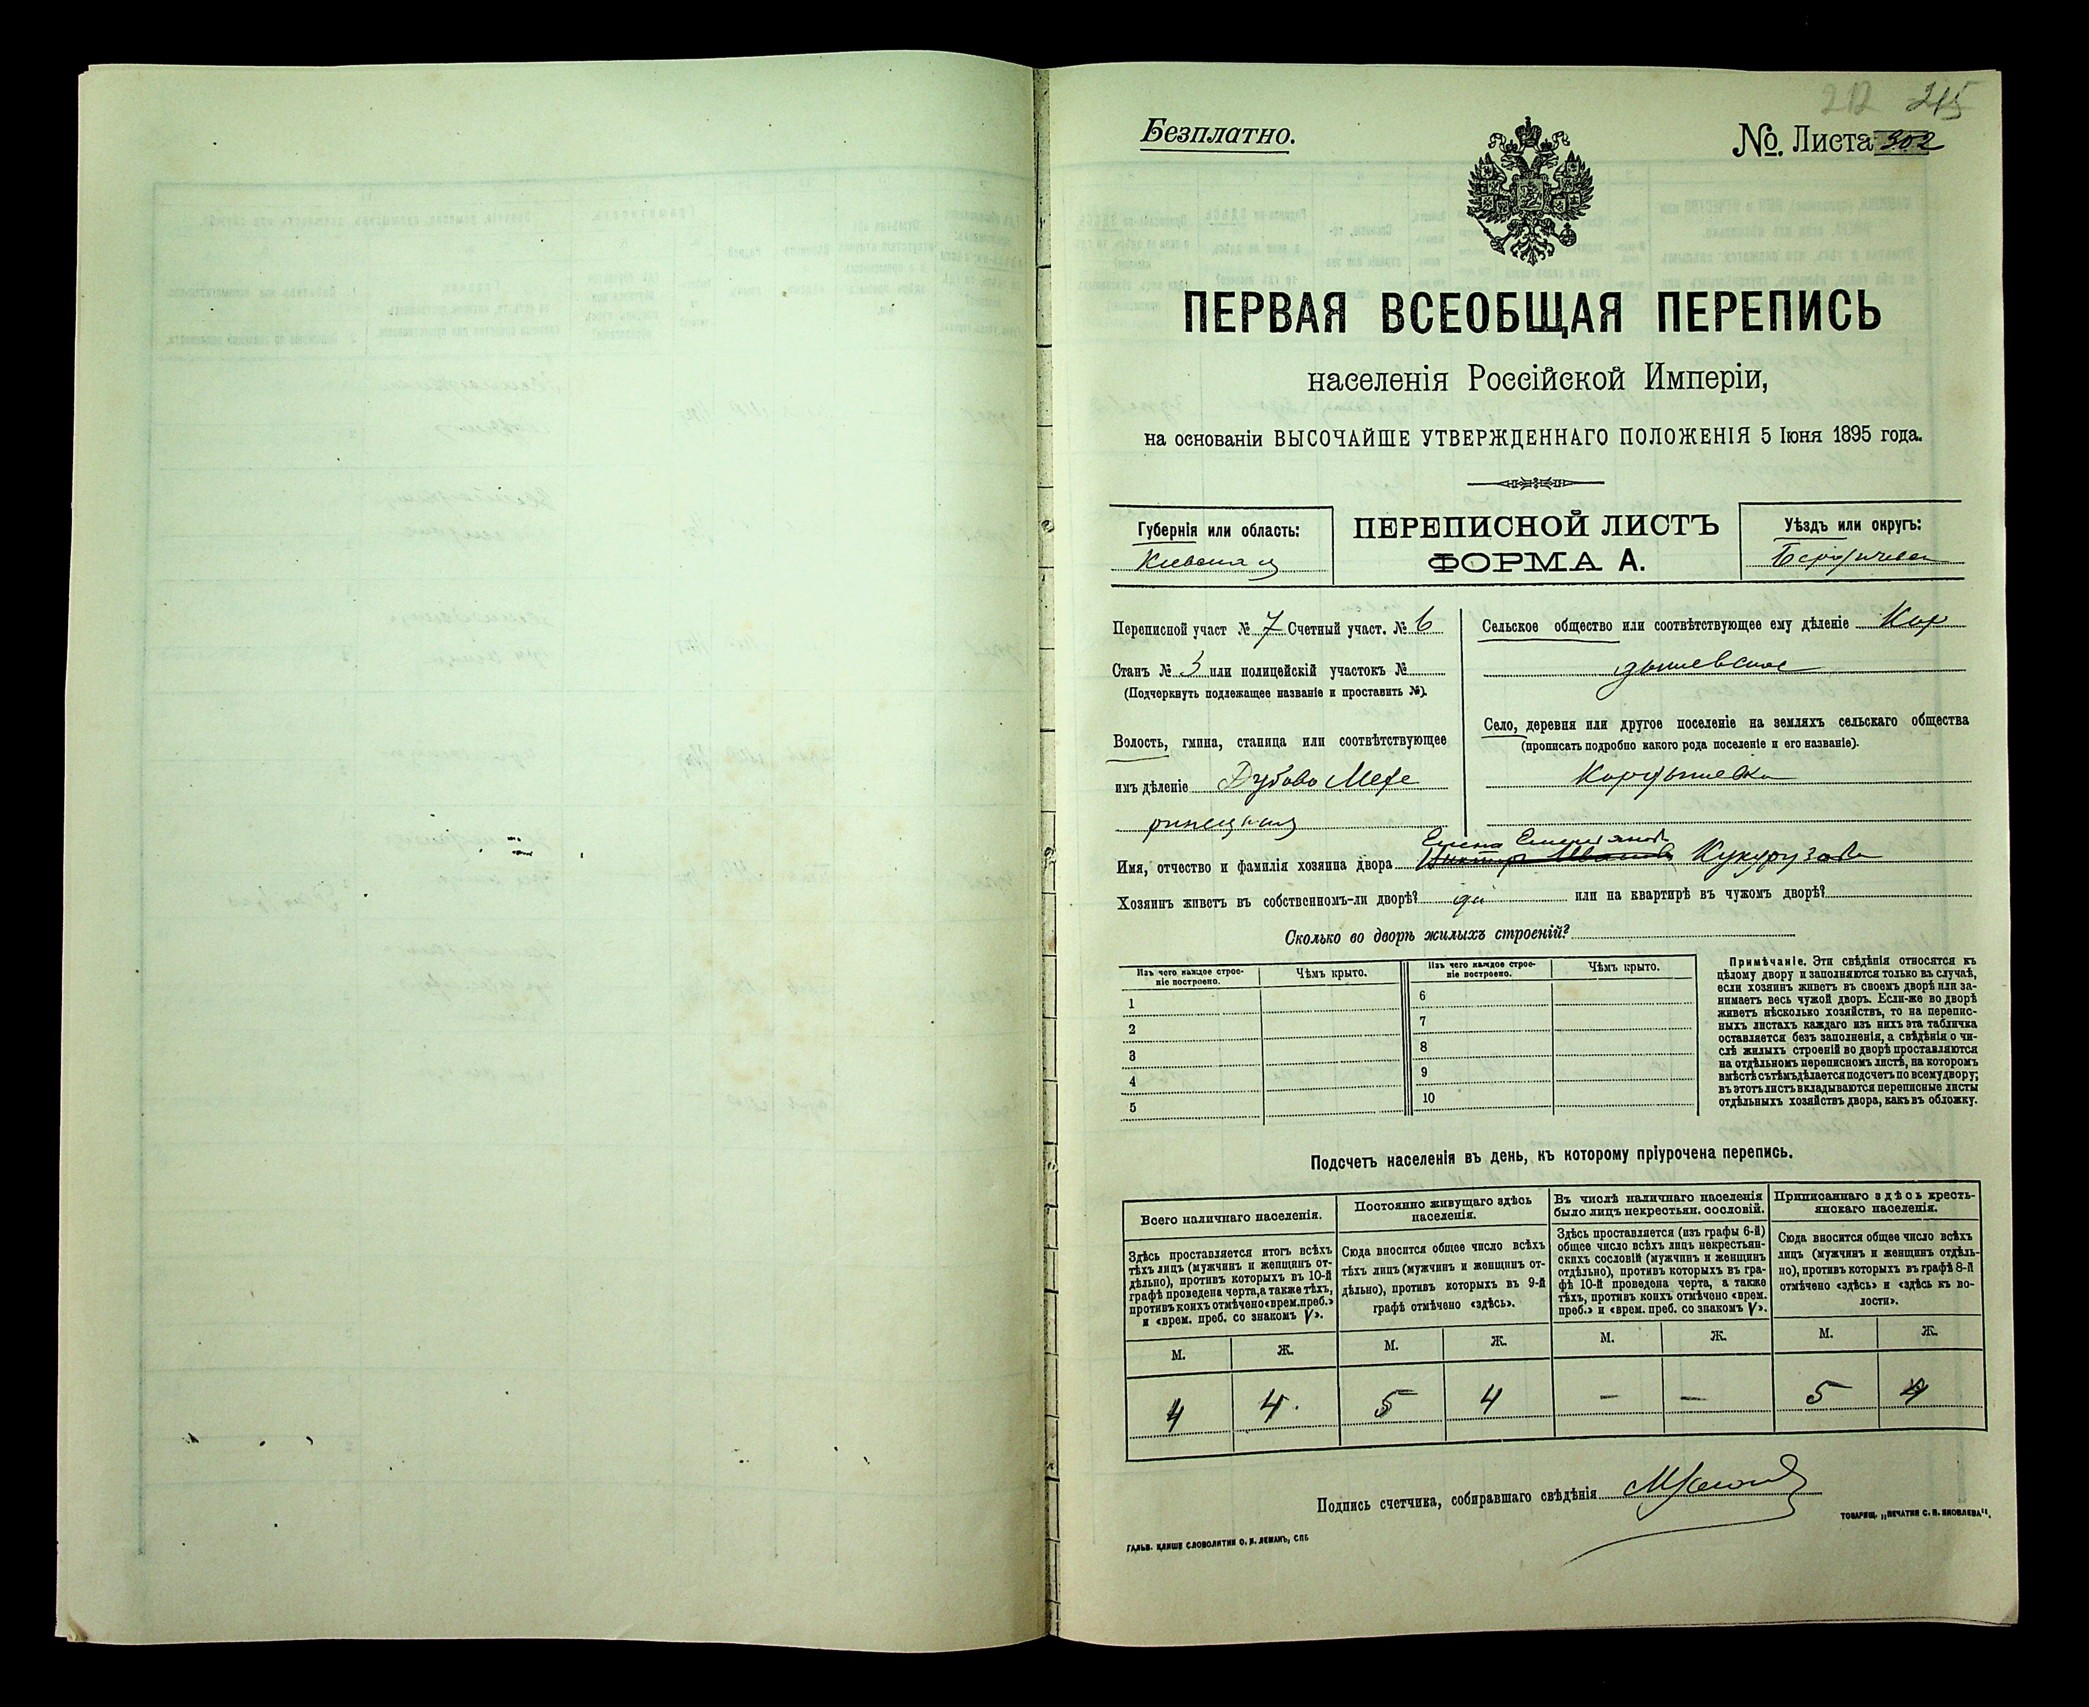 212 215
Безплатно.
№. Листа 302
ПЕРВАЯ ВСЕОБЩАЯ ПЕРЕПИСЬ
населенія Россійской Имперіи,
на основаніи ВЫСОЧАЙШЕ УТВЕРЖДЕННАГО ПОЛОЖЕНІЯ 5 Іюня 1895 года.
Губернія или область:
Киевская
ПЕРЕПИСНОЙ ЛИСТЪ
ФОРМА А.
Уѣздъ или округъ:
Бердичевск
Переписной участ № 7 Счетный участ. № 6
Станъ № 3 или полицейскій участокъ №
(Подчеркнуть подлежащее названіе и проставить №).
Волость, гмина, станица или соотвѣтствующее
имъ дѣленіе Дубово Меже
ринецкая
Сельское общество или соотвѣтствующее ему дѣленіе Кор
дышевское
Село, деревня или другое поселеніе на земляхъ сельскаго общества
(прописать подробно какого рода поселеніе и его названіе).
Кордышевка
Имя, отчество и фамилія хозяина двора Кукурузова
Хозяинъ живетъ въ собственномъ-ли дворѣ? да или на квартирѣ въ чужомъ дворѣ?
Сколько во дворѣ жилыхъ строеній?
Изъ чего каждое строе-
ніе построено.
Чѣмъ крыто.
Изъ чего каждое строе-
ніе построено.
Чѣмъ крыто.
1 6
2 7
3 8
4 9
5 10
Примѣчаніе. Эти свѣдѣнія относятся къ
цѣлому двору и заполняются только въ случаѣ,
если хозяинъ живетъ въ своемъ дворѣ или за-
нимаетъ весь чужой дворъ. Если-же во дворѣ
живетъ нѣсколько хозяйствъ, то на перепис-
ныхъ листахъ каждаго изъ нихъ эта табличка
оставляется безъ заполненія, а свѣдѣнія о чи-
слѣ жилыхъ строеній во дворѣ проставляются
на отдѣльномъ переписномъ листѣ, на которомъ
вмѣстѣ съ тѣмъ дѣлается подсчетъ по всему двору;
въ этотъ листъ вкладываются переписные листы
отдѣльныхъ хозяйствъ двора, какъ въ обложку.
Подсчетъ населенія въ день, къ которому пріурочена перепись.
Всего наличнаго населенія.
Здѣсь проставляется итогъ всѣхъ
тѣхъ лицъ (мужчинъ и женщинъ от-
дѣльно), противъ которыхъ въ 10-й
графѣ проведена черта, а также тѣхъ,
противъ коихъ отмѣчено «врем. преб.»
и «врем. преб. со знакомъ V».
Постоянно живущаго здѣсь
населенія.
Сюда вносится общее число всѣхъ
тѣхъ лицъ (мужчинъ и женщинъ от-
дѣльно), противъ которыхъ въ 9-й
графѣ отмѣчено «здѣсь».
Въ числѣ наличнаго населенія
было лицъ некрестьян. сословій.
Здѣсь проставляется (изъ графы 6-й)
общее число всѣхъ лицъ некрестьян-
скихъ сословій (мужчинъ и женщинъ
отдѣльно), противъ которыхъ въ гра-
фѣ 10-й проведена черта, а также
тѣхъ, противъ коихъ отмѣчено «врем.
преб.» и «врем. преб. со знакомъ V».
Приписаннаго здѣсь кресть-
янскаго населенія.
Сюда вносится общее число всѣхъ
лицъ (мужчинъ и женщинъ отдѣль-
но), противъ которыхъ въ графѣ 8-й
отмѣчено «здѣсь» и «здѣсь въ во-
лости».
М. Ж. М. Ж. М. Ж. М. Ж.
4 4. 5 4 — — 5 4
Подпись счетчика, собиравшаго свѣдѣнія
ГАЛЬВ. КЛИШЕ СЛОВОЛИТНИ О. И. ЛЕМАНЪ, СПБ
ТОВАРИЩ. „ПЕЧАТНЯ С. П. ЯКОВЛЕВА".